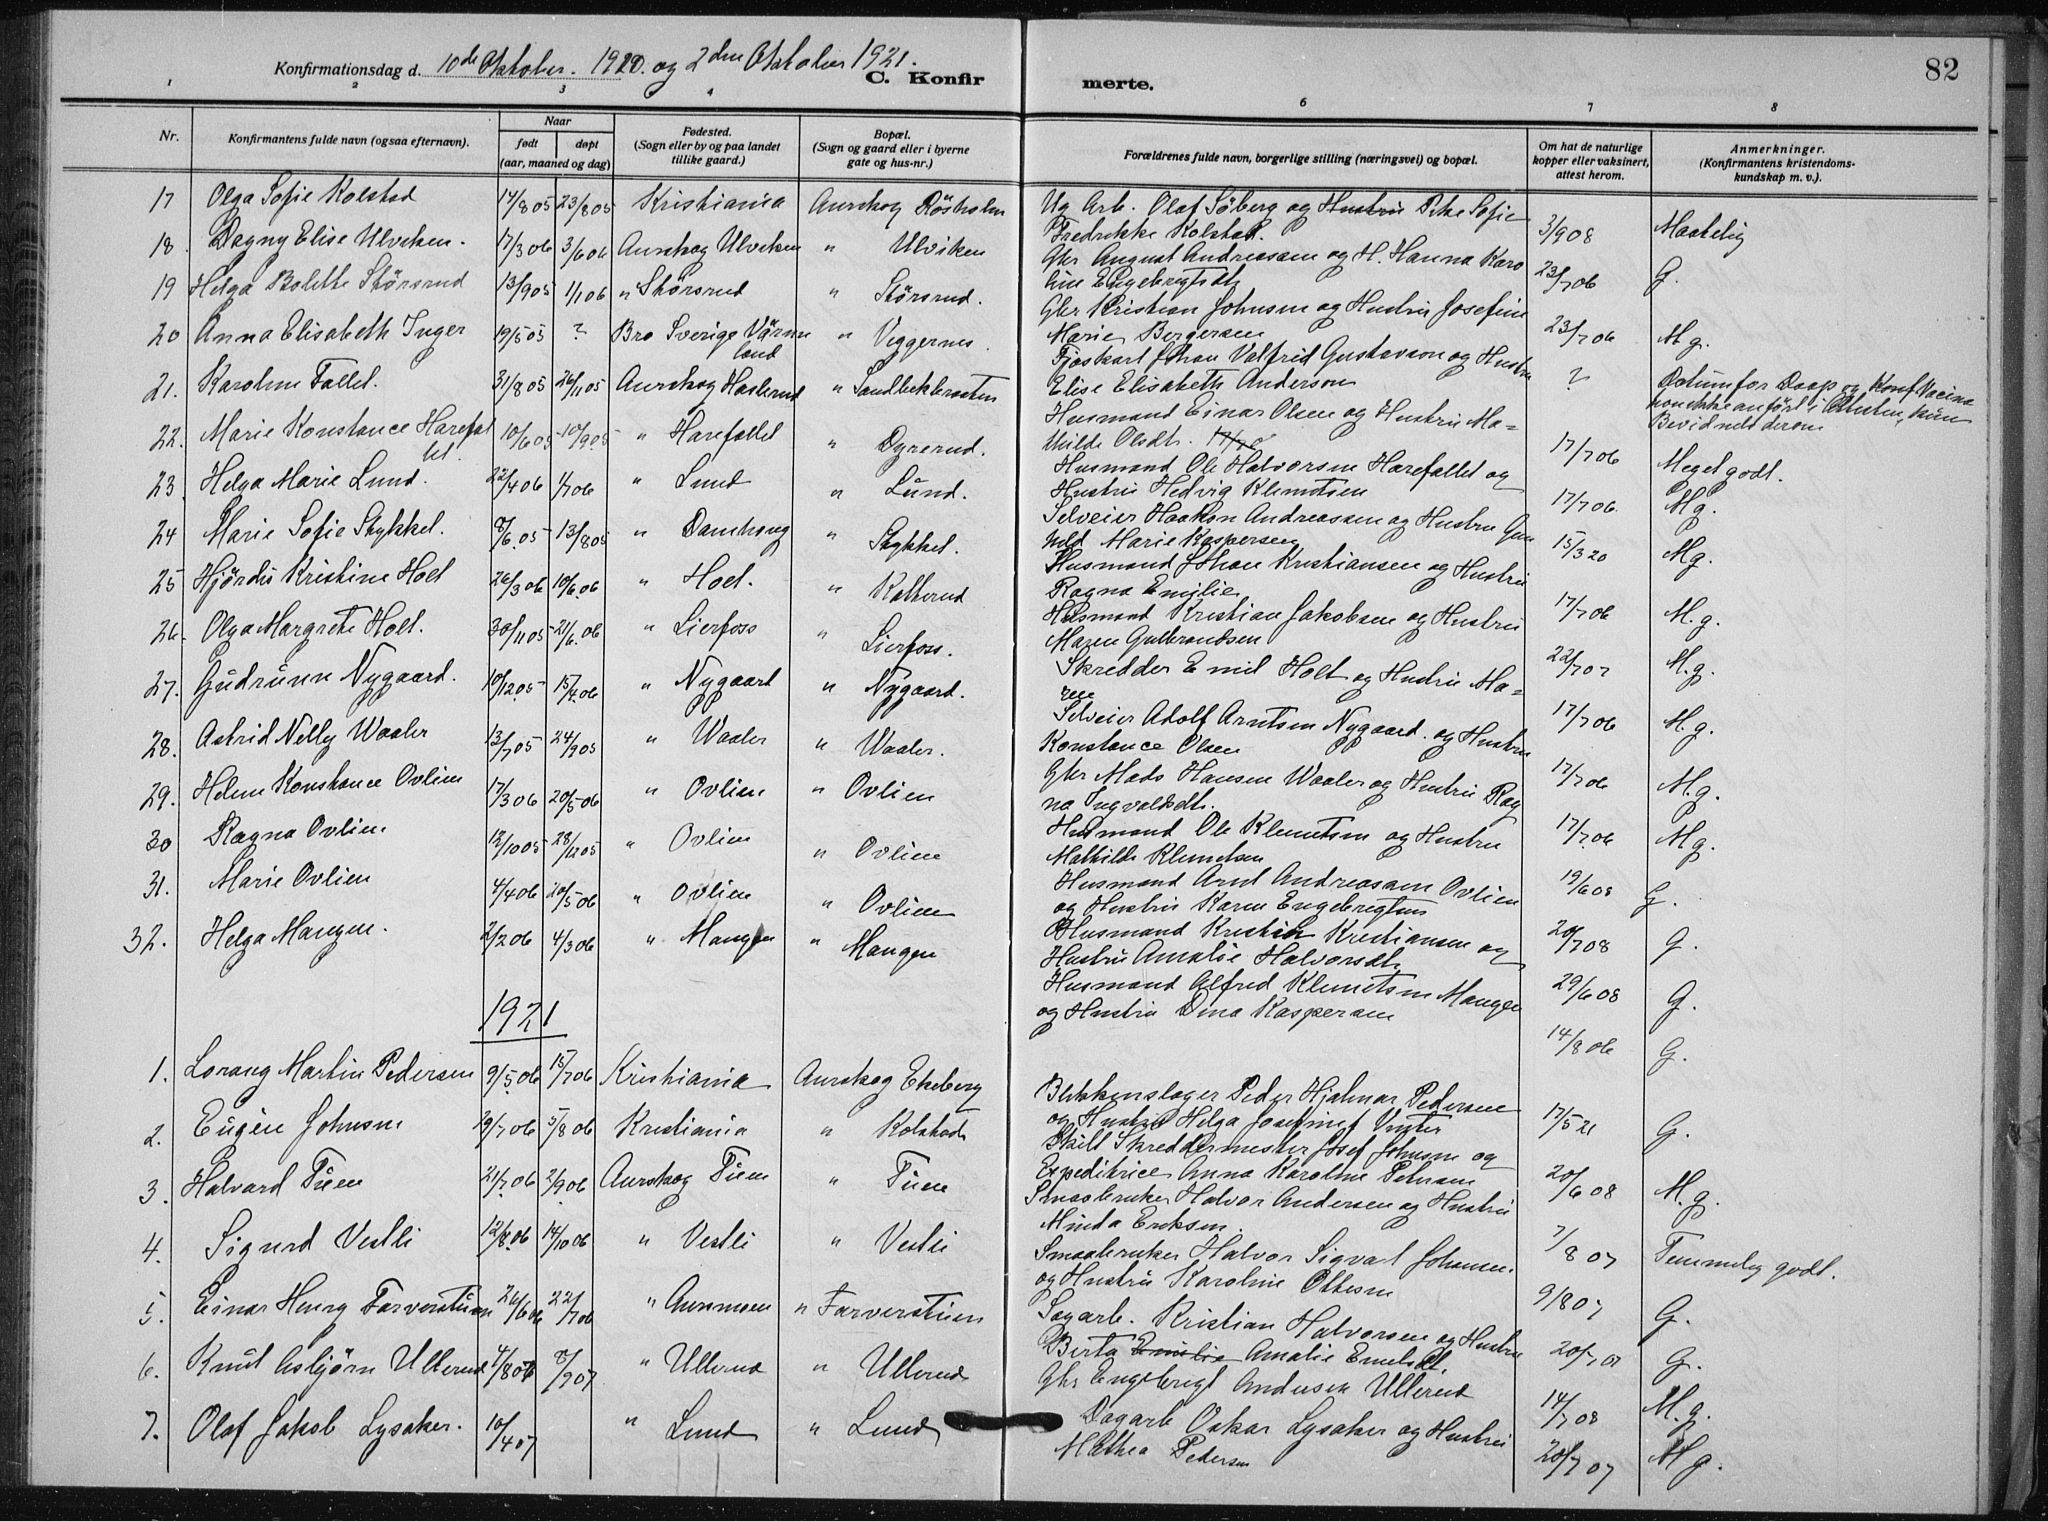 82
Konfirmationsdag d. 10de Oktober. 1920. og 2den Oktober 1921.
C. Konfir merte.
1 2 3 4 6 7 8
Nr. Konfirmantens fulde navn (ogsaa efternavn). Naar født døpt (aar, maaned og dag) Fødested. (Sogn eller by og paa landet tillike gaard.) Bopæl. (Sogn og gaard eller i byerne gate og hus-nr.) Forældrenes fulde navn, borgerlige stilling (næringsvei) og bopæl. Om hat de naturlige kopper eller vaksinert, attest herom. Anmerkninger. (Konfirmantens kristendoms-kundskap m. v.).
17 Olga Sofie Kolstad 14/8 05 23/8 05 Kristiania Aurskog Røsholm Ug Arb. Olaf Søberg og Hustru Sofie
Fredrikke Kolstad. 3/9 08 Maatelig
18. Dagny Elise Ulviken. 17/3 06 3/6 06 Aurskog Ulviken " Ulviken Gbr August Andreassen og H. Hanna Karo
line Engebregtsdt 23/7 06 G.
19 Helga Bolette Størsrud 13/9 05 1/1 06 " Størsrud " Størsrud. Gbr Kristian Johnsen og Hustru Josefine
Marie Bergersen 23/7 06 M.g.
20 Anna Elisabeth Inger 19/5 05 ? Bro Sverige Värm
land " Veggernes. Fjøskarl Johan Valfrid Gustavson og Hustru
Elise Elisabeth Anderson ? Datum for Daap og Konf Vacina
ikke anført i Attesten, kun
Bevidnelse derom
21. Karoline Fallet. 31/8 05 26/11 05 Aurskog Haslerud " Sandbekbraaten Husmand Einar Olsen og Hustru Ma=
thilde Olsdt. 17/7 06 Meget godt.
22. Marie Konstance Harefal
let. 10/6 05 10/9 05 " Harefallet " Dyrerud. Husmand Ole Halvorsen Harefallet og
Hustru Hedvig Klemetsen 17/7 06 M.g.
23. Helga Marie Lund. 22/4 06 1/7 06 " Lund " Lund. Selveier Haakon Andreassen og Hustru Gun
hild Marie Kaspersen 15/3 20 M.g.
24 Marie Sofie Stykkel. 8/6 05 13/8 05 " Damhaug " Stykkel. Husmand Johan Kristiansen og Hustru
Ragna Emilie 17/7 06 M.g.
25 Hjørdis Kristine Holt 26/3 06 10/6 06 " Holt. " Kolterud Husmand Kristian Jakobsen og Hustru
Maren Gulbrandsen 22/7 07 M.g.
26. Olga Margrete Holt. 30/11 05 21/6 06 " Lierfoss " Lierfoss. Skredder Emil Holt og Hustru Ma=
ren 17/7 06 M.g.
27. Gudrunn Nygaard. 10/12 05 15/4 06 " Nygaard " Nygaard. Selveier Adolf Arntsen Nygaard. og Hustru
Konstance Olsen 17/7 06 M.g.
28. Astrid Nelly Waaler 13/7 05 24/9 05 " Waaler " Waaler. Gbr Mads Hansen Waaler og Hustru Rag
na Ingvaldsdt. 17/7 06 M.g.
29. Helene Konstance Ovlien 17/3 06 20/5 06 " Ovlien " Ovlien Husmand Ole Klemetsen og Hustru
Mathilde Klemetsen 19/6 08 G.
30 Ragna Ovlien 12/10 05 28/12 05 " Ovlien " Ovlien Husmand Arnt Andreassen Ovlien
og Hustru Karen Engebregtsen 20/7 08 G.
31. Marie Ovlien 4/4 06 20/5 06 " Ovlien " Ovlien Husmand Kristian Kristiansen og
Hustru Amalie Halvorsdt. 29/6 08 G.
32. Helga Mangen. 2/2 06 4/3 06 " Mangen " Mangen Husmand Alfred Klemetsen Mangen
og Hustru Dina Kaspersen 14/8 06 G.
1921
1. Lorang Martin Pedersen 9/5 06 15/7 06 Kristiania Aurskog Ekeberg Blikkenslager Peder Hjalmar Pedersen
og Hustru Helga Josefine Vinter 17/5 21 G.
2. Eugen Johnsen 29/7 06 5/8 06 Kristiania " Kolstad Skilt Skreddermester Josef Johnsen og
Expeditrice Anna Karoline Petersen 20/6 08 M.g.
3. Halvard Tuen 21/7 06 2/9 06 Aurskog Tuen " Tuen Smaabruker Halvor Andersen og Hustru
Minda Eriksen. 7/8 07 Temmelig godt.
4. Sigurd Vestli 12/8 06 14/10 06 " Vestli " Vestli Smaabruker Halvor Sigvart Johansen.
og Hustru Karoline Ottesen 9/8 07 G.
5. Einar Henry Tarverstuen 26/6 06 22/7 06 " Aursmoen " Tarverstuen Sagarb. Kristian Halvorsen og Hustru
Berta Emilie Amalie Emelsdt. 20/7 07 G.
6. Knut Asbjørn Ullerud 4/8 07 8/9 07 " Ullerud " Ullerud Gbr Engebregt Andersen Ullerud 14/7 08 M.g.
7. Olaf Jakob Lysaker. 10/4 07 " Lund " Lund Dagarb Oskar Lysaker og Hustru
Mathea Pedersen 20/7 07 M.g.